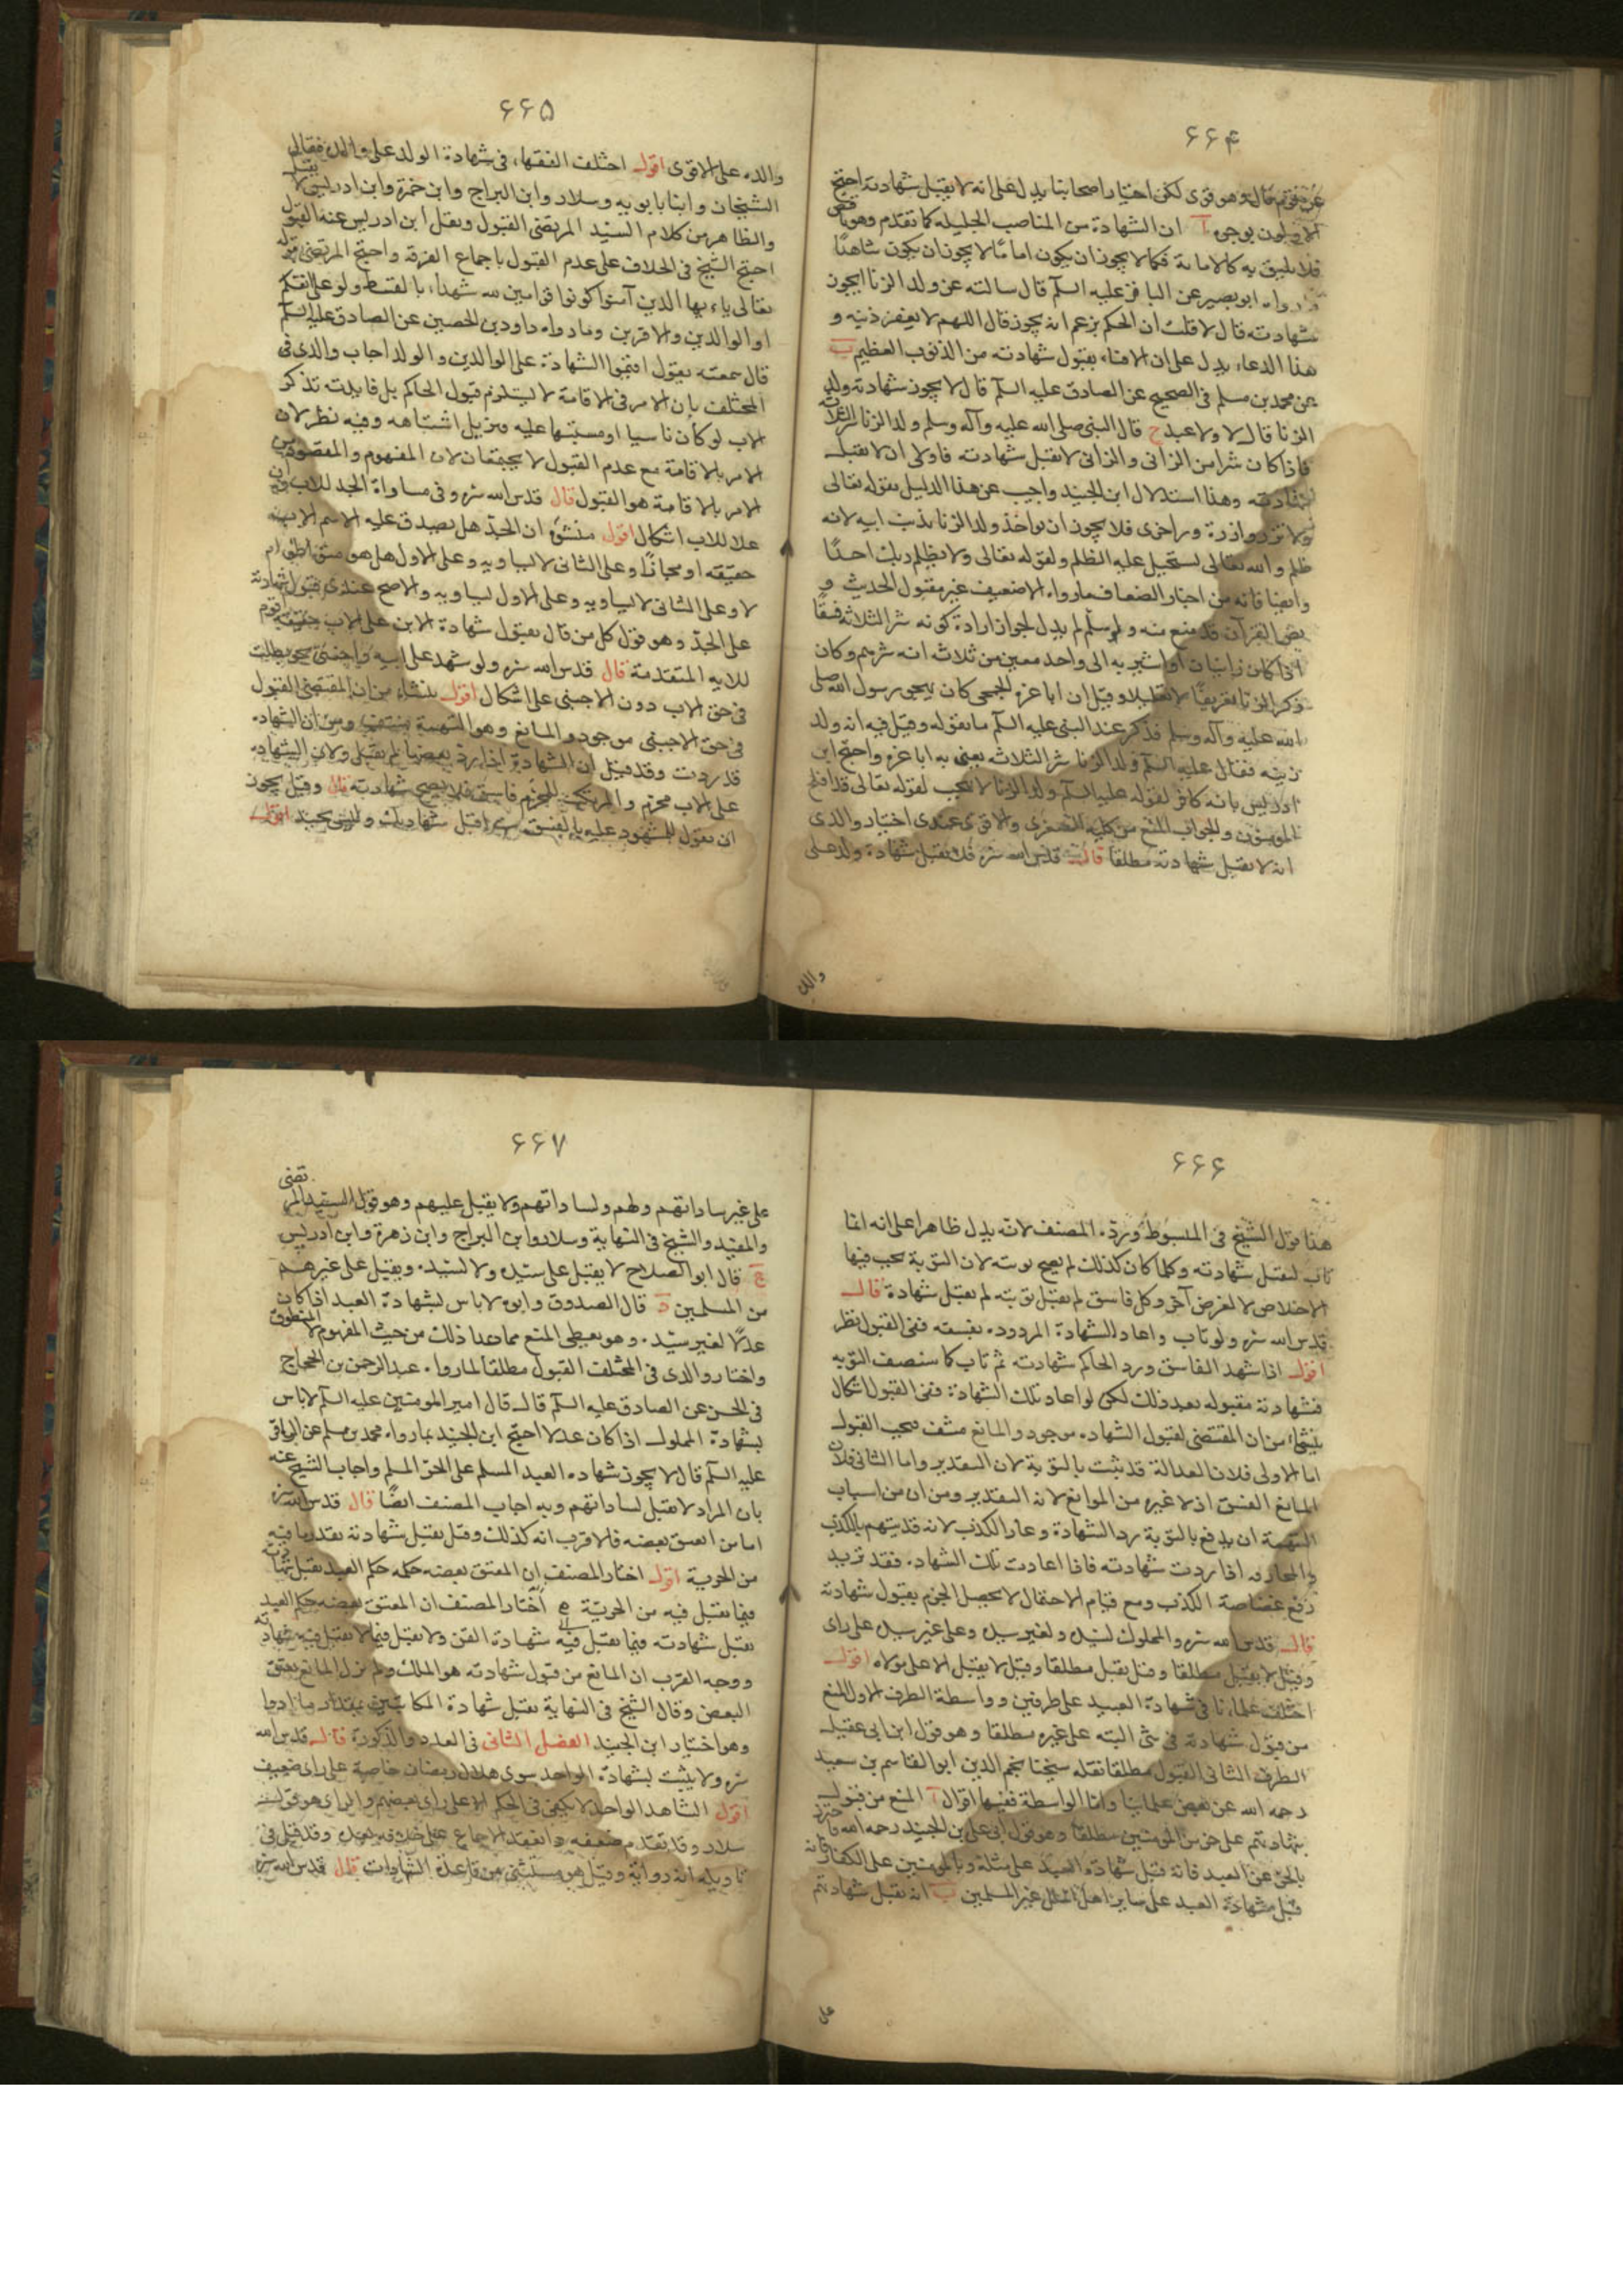 ۶۶۴
قوى لكن اختيار اصحابنا يدل على انه لا يقبل شهادته احتج
الاولون بوجوه آ ان الشهادة من المناصب الجليله كما تقدم وهو ناقص
فلا يليق به كالامامة فكما لا يجوز ان يكون اماما لا يجوز ان يكون شاهدا
رواه ابو بصير عن الباقر عليه السلم قال سالته عن ولد الزنا ايجوز
شهادته قال لا قلت ان الحكم يزعم انه يجوز قال اللهم لا يغفر ذنبه و
هذا الدعاء يدل على ان الافتاء بقبول شهادته من الذنوب العظيم ب
عن محمد بن مسلم فى الصحيح عن الصادق عليه السلم قال لا يجوز شهادة ولد
الزنا قال لا ولا عبد ج قال النبى صلى الله عليه وآله وسلم ولد الزنا شر الثلاثة
فاذا كان شرا من الزانى والزانى لا تقبل شهادته فاولى ان لا تقبل
شهادته وهذا استدلال ابن الجنيد واجيب عن هذا الدليل بقوله تعالى
ولا تزر وازرة وزر اخرى فلا يجوز ان يواخذ ولد الزنا بذنب ابيه لانه
ظلم والله تعالى يستحيل عليه الظلم ولقوله تعالى ولا يظلم ربك احدا
وايضا فانه من اخبار الضعاف مارواه الا ضعيف غير مقبول الحديث و
نص القرآن قد منع منه ولو سلم لم يدل لجواز ارادة كونه شر الثلاثة فسقا
اذا كان زانيان او اشير به الى واحد معين من ثلاثة انه شرهم وكان
ذكر الزنا تعريفا لا تعليلا وقيل ان ابا عزه الجمحى كان يهجو رسول الله صلى
الله عليه وآله وسلم فذكر عند النبى عليه السلم ما يقوله وقيل فيه انه ولد
زنية فقال عليه السلم ولد الزنا شر الثلاثة يعنى به ابا عزه واحتج ابن
ادريس بانه كافر لقوله عليه السلم ولد الزنا لا ينجب لقوله تعالى قد افلح
المومنون والجواب المنع من كلية الصغرى والاقوى عندى اختيار والدى
انه لا تقبل شهادته مطلقا قال قدس الله سره فلا تقبل شهادة ولد على
والده
۶۶۵
والده على الاقوى اقول اختلف الفقهاء فى شهادة الولد على والده فقال
الشيخان وابنا بابويه وسلار وابن البراج وابن حمزة وابن ادريس لا تقبل
والظاهر من كلام السيد المرتضى القبول ونقل ابن ادريس عنه القبول
احتج الشيخ فى الخلاف على عدم القبول باجماع الفرقة واحتج المرتضى بقوله
تعالى ياءيها الذين آمنوا كونوا قوامين لله شهداء بالقسط ولو على انفسكم
او الوالدين والاقربين وما رواه داود بن الحصين عن الصادق عليه السلم
قال سمعته يقول اقيموا الشهادة على الوالدين والولد اجاب والدى فى
المختلف بان الامر فى الاقامة لا يستلزم قبول الحاكم بل فايدته تذكر
الاب لو كان ناسيا او مشتبها عليه ويزيل اشتباهه وفيه نظر لان
الامر بالاقامة مع عدم القبول لا يجتمعان لان المفهوم والمقصود من
الامر بالاقامة هو القبول قال قدس الله سره وفى مساواة الجد للاب وان
علا للاب اشكال اقول منشؤه ان الجد هل يصدق عليه الاسم الاب
حقيقة او مجازا وعلى الثانى لا يساويه وعلى الاول هل هو متواطؤ ام
لا وعلى الثانى لا يساويه وعلى الاول يساويه والاصح عندى قبول شهادته
على الجد وهو قول كل من قال بقبول شهادة الابن على الاب
للايه المتقدمة قال قدس الله سره ولو شهد على ابيه واجنبى بحق بطلت
فى حق الاب دون الاجنبى على اشكال اقول ينشاء من ان المقتضى القبول
فى حق الاجنبى موجود والمانع وهو التهمة منتف ومن ان الشهاده
قد ردت وقد قيل ان الشهادة اذا رد بعضها لم يقبل ولان الشهاده
على الاب محرم والمرتكب للمحرم فاسق فلا يصح شهادته قال وقيل يجوز
ان يقول للمشهود عليه بالفسق تب اقبل شهادتك وليس بجيد اقول
۶۶۶
هذا قول الشيخ فى المبسوط ورده المصنف لانه يدل ظاهرا على انه انما
تاب لتقبل شهادته وكلما كان كذلك لم يصح توبته لان التوبة يجب فيها
الاخلاص لا لغرض آخر وكل فاسق لم يقبل توبته لم يقبل شهادة قال
قدس الله سره ولو تاب واعاد الشهادة المردوده بفسقه ففى القبول نظر
اقول اذا شهد الفاسق ورد الحاكم شهادته ثم تاب كما سنصف التوبه
فشهادته مقبوله بعد ذلك لكن لو اعاد تلك الشهادة ففى القبول اشكال
ينشاء من ان المقتضى لقبول الشهاده موجود والمانع منتف فيجب القبول
اما الاولى فلان العدالة قد ثبت بالتوبة لان التقدير واما الثانى فلان
المانع الفسق اذ لا غيره من الموانع لانه التقدير ومن ان من اسباب
التهمة ان يدفع بالتوبة رد الشهادة وعار الكذب لانه قد يتهم بالكذب
والمجازفه اذا ردت شهادته فاذا اعادت تلك الشهاده فقد تريد
دفع غضاضة الكذب ومع قيام الاحتمال لا يحصل الجزم بقبول شهادته
قال قدس الله سره والمملوك لسيده ولغير سيده وعلى غير سيده على راى
وقيل لا يقبل مطلقا وقيل يقبل مطلقا وقيل لا يقبل الا على مولاه اقول
اختلف علماءنا فى شهادة العبيد على طرفين وواسطة الطرف الاول المنع
من قبول شهادته فى شئ البته على غيره مطلقا وهو قول ابن ابى عقيل
الطرف الثانى القبول مطلقا نقله شيخنا نجم الدين ابو القاسم بن سعيد
رحمه الله عن بعض علمائنا واما الواسطة ففيها اقوال آ المنع من قبول
شهادتهم على حر من المومنين مطلقا وهو قول ابى على بن الجنيد رحمه الله فاحترز
بالحر عن العبد فانه قبل شهادة العبيد على مثله وبالمومنين على الكفار فانه
قبل شهادة العبد على ساير اهل الملل غير المسلمين ب انه تقبل شهادتهم
على
۶۶۷
على غير ساداتهم ولهم ولساداتهم ولا يقبل عليهم وهو قول السيد المرتضى
والمفيد والشيخ فى النهاية وسلار وابن البراج وابن زهرة وابن ادريس
ج قال ابو الصلاح لا يقبل على سيده ولا لسيده ويقبل على غيرهم
من المسلمين د قال الصدوق وابوه لا باس بشهادة العبد اذا كان
عدلا لغير سيده وهو يعطى المنع مما عدا ذلك من حيث المفهوم لا المنطوق
واختار والدى فى المختلف القبول مطلقا لما رواه عبد الرحمن بن الحجاج
فى الحسن عن الصادق عليه السلم قال قال امير المومنين عليه السلم لا باس
بشهادة المملوك اذا كان عدلا احتج ابن الجنيد بما رواه محمد بن مسلم عن الباقر
عليه السلم قال لا يجوز شهاده العبد المسلم على الحر المسلم واجاب الشيخ عنه
بان المراد لا تقبل لساداتهم وبه اجاب المصنف ايضا قال قدس الله سره
اما من اعتق بعضه فالاقرب انه كذلك وقيل يقبل شهادته بقدر ما فيه
من الحرية اقول اختار المصنف ان المعتق بعضه حكمه حكم العبد يقبل شهادته
فيما تقبل فيه من الحرية اختار المصنف ان المعتق بعضه حكم العبد
يقبل شهادته فيما تقبل فيه شهادة القن ولا تقبل فيما لا تقبل فيه شهادته
ووجه القرب ان المانع من قبول شهادته هو الملك ولم يزل المانع بعتق
البعض وقال الشيخ فى النهاية تقبل شهادة المكاتبين بمقدار ما ادوا
وهو اختيار ابن الجنيد الفصل الثانى فى العدد والذكورة قال قدس الله
سره ولا يثبت بشهادة الواحد سوى هلال رمضان خاصة على راى ضعيف
اقول الشاهد الواحد لا يكفى فى الحكم الا على راى بعضهم والراى هو قول
سلار وقد تقدم ضعفه وانعقد الاجماع على خلافه بعده وقد قيل فى
تاويله انه رواية وقيل هو مستثنى من قاعدة الشهادات قال قدس الله سره